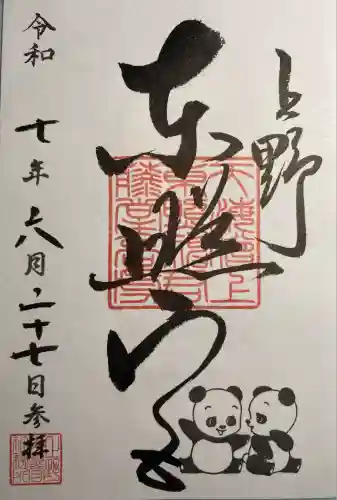 上野
東照宮
令和 七年 六月 二十七日参拝